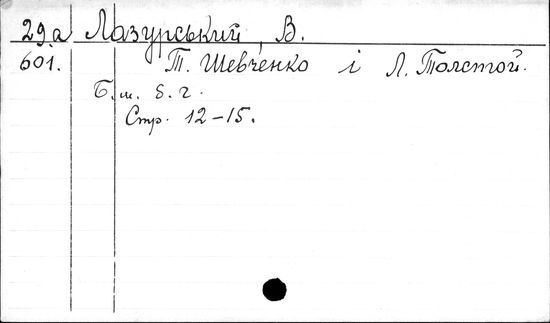 29а Лазурський, В.
601. Т. Шевченко і Л. Толстой.
Б. м. б. г.
Стр. 12-15.